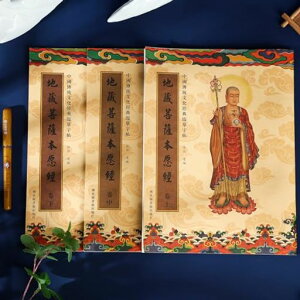 中國傳統文化經典臨摹字帖
地藏菩薩本愿經
卷上
中國傳統文化經典臨摹字帖
地藏菩薩本愿經
卷中
中國傳統文化經典臨摹字帖
地藏菩薩本愿經
卷下